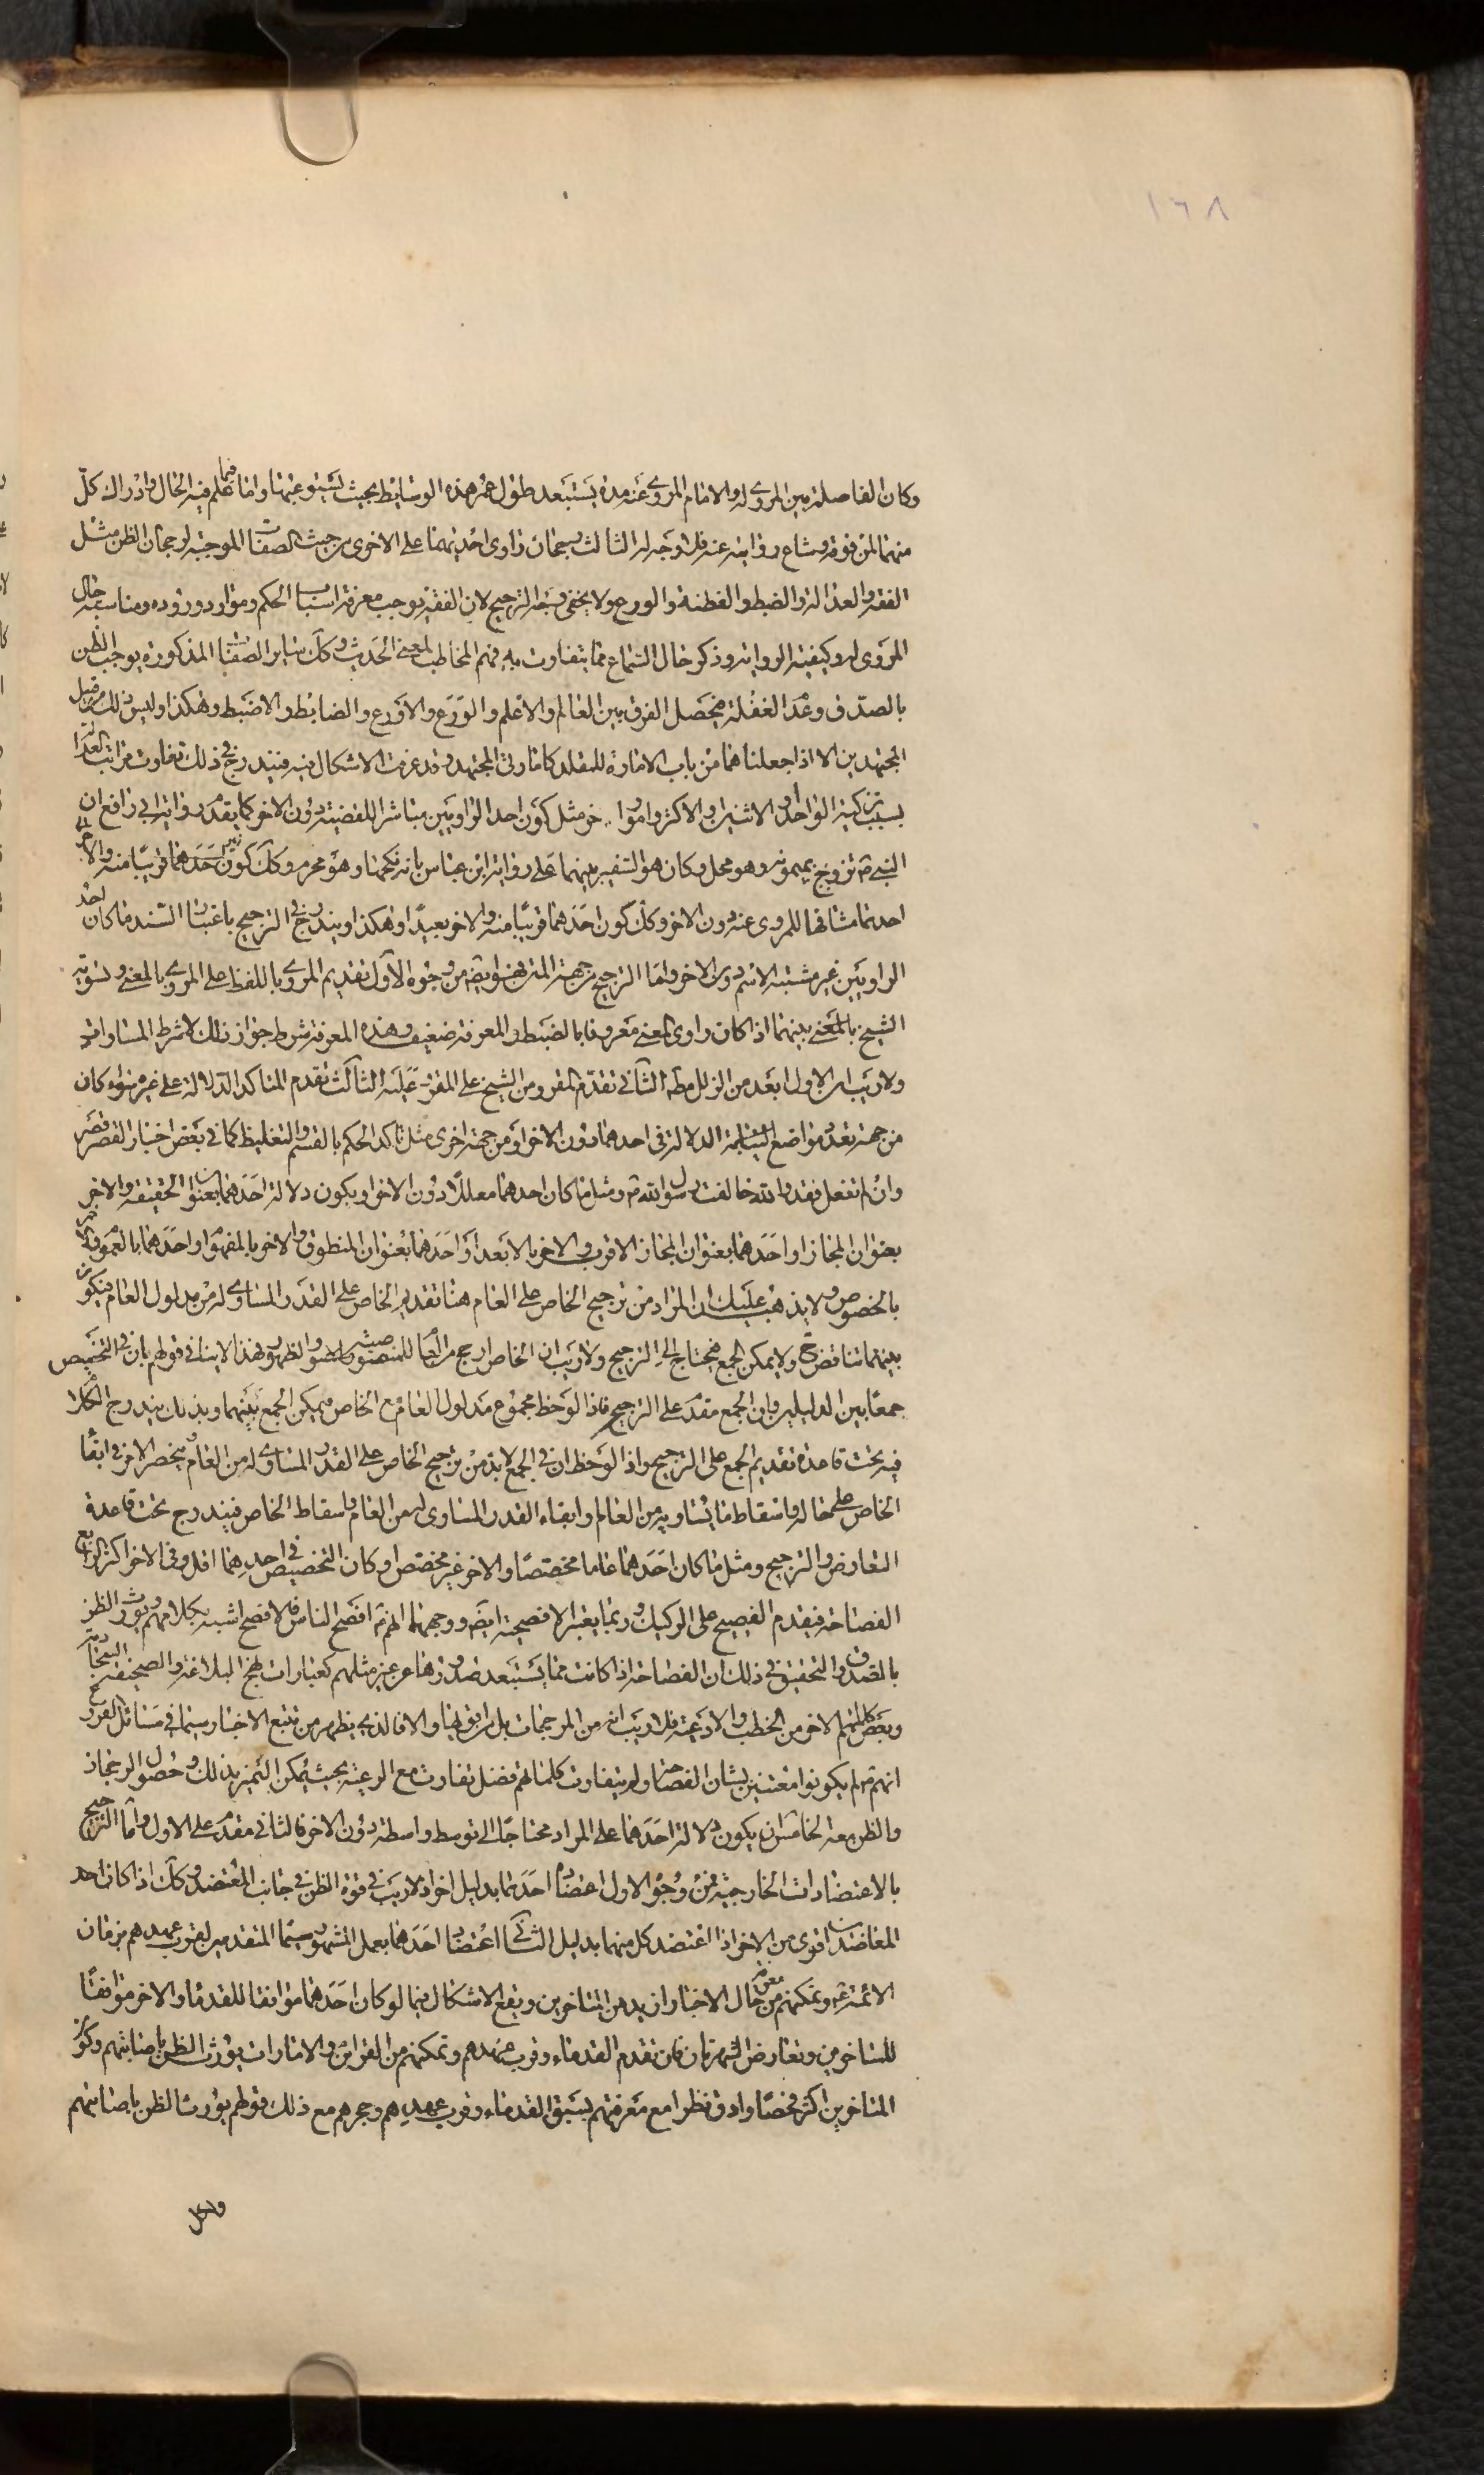 ١٦٨
وكان الفاصلة بين المروي له والامام المروي عنه مدة يستبعد طول عمر هذه الوسايط بحيث يستوعبها واما فيما علم فيه الحال وادراك كل
منهما لمن فوقه وشاع روايته عنه فلا وجه له الثالث رجحان راوى احديهما على الاخرى من حيث الصفات الموجبة لرجحان الظن مثل
الفقه والعدالة والضبط والفطنة والورع ولا يخفى وجه الترجيح لان الفقيه يوجب معرفة اسباب الحكم وموارد وروده ومناسبة حال
المروى له وكيفية الرواية وذكر حال السماع مما يتفاوت به فهم المخاطب لمعنى الحديث وكك ساير الصفات المذكورة يوجب الظن
بالصدق وعدم الغفلة فيحصل الفرق بين العالم والاعلم والورع والاورع والضابط والاضبط وهكذا وليس ذلك من قبيل
المجتهدين الا اذا جعلناهما من باب الامارة للمقلد كامارتى المجتهد وقد عرفت الاشكال فيه فيندرج في ذلك تفاوت مراتب العدالة
بسبب تزكية الواحد او الاثنين والاكثر وامور اخر مثل كون احد الراويين مباشرا للقضية دون الاخر كما يقدم رواية ابي رافع ان
النبي ص تزوج ميمونة وهو محل وكان هو السفير بينهما على رواية ابن عباس بانه نكحها وهو محرم وكك كون احدهما قريبا منه والاخر
احدهما مشافها للمروى عنه دون الاخر وكك كون احدهما قريبا منه والاخر بعيدا وهكذا ويندرج في الترجيح باعتبار السند ما كان احد
الراويين غير مشتبه الاسم دون الاخر واما الترجيح من جهة المتن فهو ايضا من وجوه الاول تقديم المروي باللفظ على المروي بالمعنى وتسوية
الشيخ بالمعنى بينهما اذا كان راوى المعنى معروفا بالضبط والمعرفة ضعيف وهذه المعرفة شرط جواز ذلك لا شرط المساواة
ولا ريب ان الاول ابعد من الزلل مطلقا الثاني تقدم المقرو من الشيخ على المقرو عليه الثالث تقدم المتاكد الدلالة على غيره سواء كان
من جهة تعدد مواضع الدلالة في احدهما دون الاخر او من جهة اخرى مثل تاكد الحكم بالقسم والتغليظ كما في بعض اخبار القصر قصر
وان لم تفعل فقد والله خالفت رسول الله ص ومثل ما كان احدهما معللا دون الاخر او يكون دلالة احدهما بعنوان الحقيقة والاخر
بعنوان المجاز او احدهما بعنوان المجاز الاقرب والاخر بالابعد او احدهما بعنوان المنطوق والاخر بالمفهوم او احدهما بالعموم والاخر
بالخصوص ولا يذهب عليك ان المراد من ترجيح الخاص على العام هنا تقديم الخاص على القدر المساوي له من مدلول العام فيكون
بينهما تناقض ح ولا يمكن الجمع فيحتاج الى الترجيح ولا ريب ان الخاص ارجح من العام للنصوصية والظهور فهذا لا ينافى قولهم بان في التخصيص
جمعا بين الدليلين وان الجمع مقدم على الترجيح فاذا لوحظ مجموع مدلول العام مع الخاص فيمكن الجمع بينهما وبذلك يندرج الكلام
فيه تحت قاعدة تقديم الجمع على الترجيح واذا لوحظ ان في الجمع لا بد من ترجيح الخاص على القدر المساوي له من العام فينحصر الامر في ابقاء
الخاص على حاله واسقاط ما يساويه من العام وابقاء القدر المساوى له من العام واسقاط الخاص فيندرج تحت قاعدة
التعارض والترجيح ومثل ما كان احدهما عاما مخصصا والاخر غير مخصص او كان التخصيص في احدهما اقل وفي الاخر اكثر الرابع
الفصاحة فيقدم الفصيح على الركيك وربما يعتبر الافصحية ايضا ووجهه انهم ع افصح الناس فالافصح اشبه بكلامهم ويورث الظن
بالصدق والتحقيق في ذلك ان الفصاحة اذا كانت مما يستبعد صدورها عن غير مثلهم كعبارات نهج البلاغة والصحيفة السجادية
وبعض كلماتهم الاخر من الخطب والادعية فلا ريب انه من المرجحات بل من اقواها والا فالذي يظهر من تتبع الاخبار سيما في مسائل الفروع
انهم ع لم يكونوا معتنين بشان الفصاحة ولم يتفاوت كلماتهم فضل تفاوت مع الرعية بحيث يمكن التميز بذلك وحصول الرجحان
والظن معه الخامس ان يكون دلالة احدهما على المراد محتاجا الى توسط واسطة دون الاخر فالثاني مقدم على الاول واما الترجيح
بالاعتضادات الخارجية فمن وجوه الاول اعتضاد احدهما بدليل اخر اذ لا ريب في قوة الظن في جانب المعتضد وكك اذا كان احد
المعاضدين اقوى من الاخر اذا اعتضد كل منهما بدليل الثاني اعتضاد احدهما بعمل المشهور سيما المتقدمين لقرب عهدهم بزمان
الائمة ع وتمكنهم من معرفة حال الاخبار ازيد من المتاخرين ويقع الاشكال فيما لو كان احدهما موافقا للقدماء والاخر موافقا
للمتاخرين وتعارض الشهرتان فان تقدم القدماء وقرب عهدهم وتمكنهم من القرائن والامارات يورث الظن باصابتهم وكون
المتاخرين اكثر فحصا وادق نظرا مع معرفتهم بسبق القدماء وقرب عهدهم وهجرهم مع ذلك قولهم يورث الظن باصابتهم